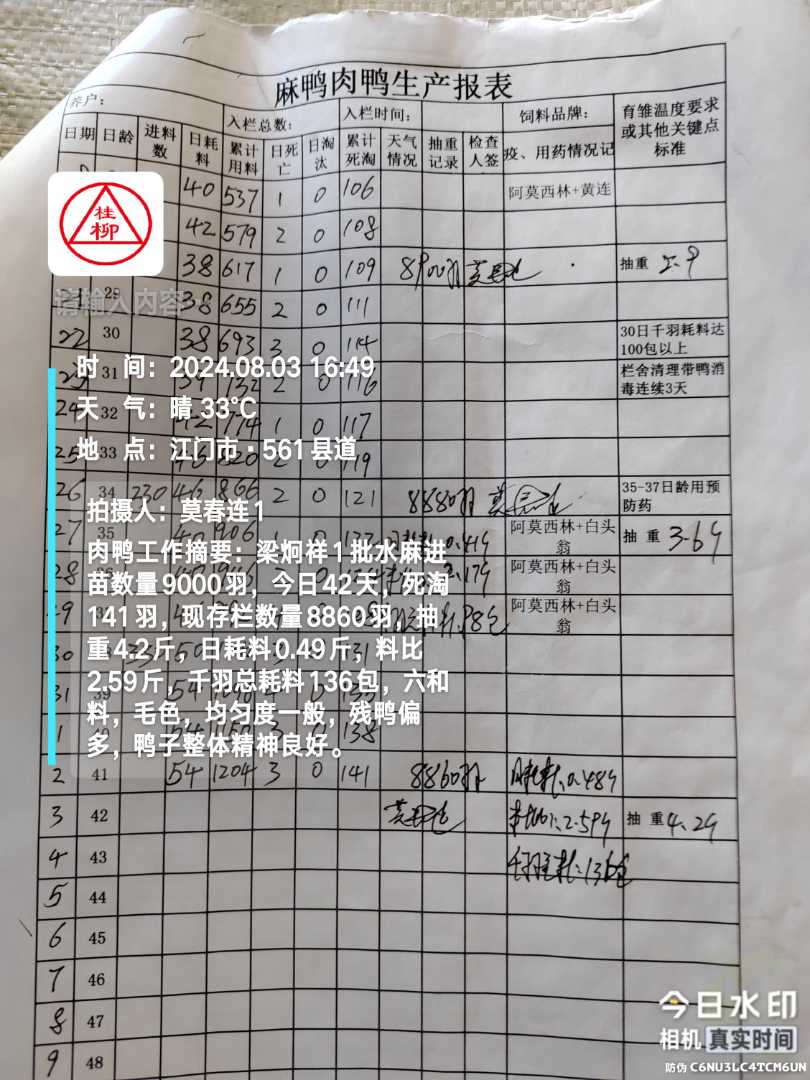 麻鸭肉鸭生产报表
养户：
入栏总数：
入栏时间：
饲料品牌：
育雏温度要求或其他关键点标准
日期 日龄 进料数 日耗料 累计用料 日死亡 日淘汰 累计死淘 天气情况 抽重记录 检查人签 疫、用药情况记
40 537 1 0 106 阿莫西林+黄连
桂柳
42 579 2 0 108
38 617 1 0 109 8900羽 抽重 2.9
请输入内容
29 38 655 2 0 111
22 30 38 693 3 0 114 30日千羽耗料达100包以上
23 31 2 0 116 栏舍清理带鸭消毒连续3天
时 间：2024.08.03 16:49
24 32 1 0 117
天 气：晴 33℃
25 33 0 119
地 点：江门市·561县道
26 34 230 46 866 2 0 121 8880羽 35-37日龄用预防药
拍摄人：莫春连1
27 35 906 阿莫西林+白头翁 抽重 3.6斤
肉鸭工作摘要：梁炯祥1批水麻进
苗数量9000羽，今日42天，死淘
28 阿莫西林+白头翁
141羽，现存栏数量8860羽，抽
29 阿莫西林+白头翁
重4.2斤，日耗料0.49斤，料比
30 131
2.59斤，千羽总耗料136包，六和
31 39 54
料，毛色，均匀度一般，残鸭偏
1 138
多，鸭子整体精神良好。
2 41 54 1204 3 0 141 8860羽 日耗料:0.48斤
3 42 料比:2.59斤 抽重 4.2斤
4 43 千羽耗料:136包
5 44
6 45
7 46
8 47
9 48
今日水印
相机 真实时间
防伪 C6NU3LC4TCM6UN